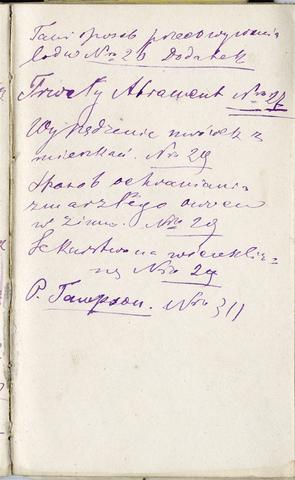 Tani sposób przechowywania
lodu Nro 26 Dodatek
Trwały Atrament Nro 27
Wypędzenie mrówek z
mieszkań. Nro 29
Sposób ochraniania
zmarzłego owocu
w zimie. Nro 29
Lekarstwo na wściekliz-
nę Nro 29
P. Tampson. Nro 311